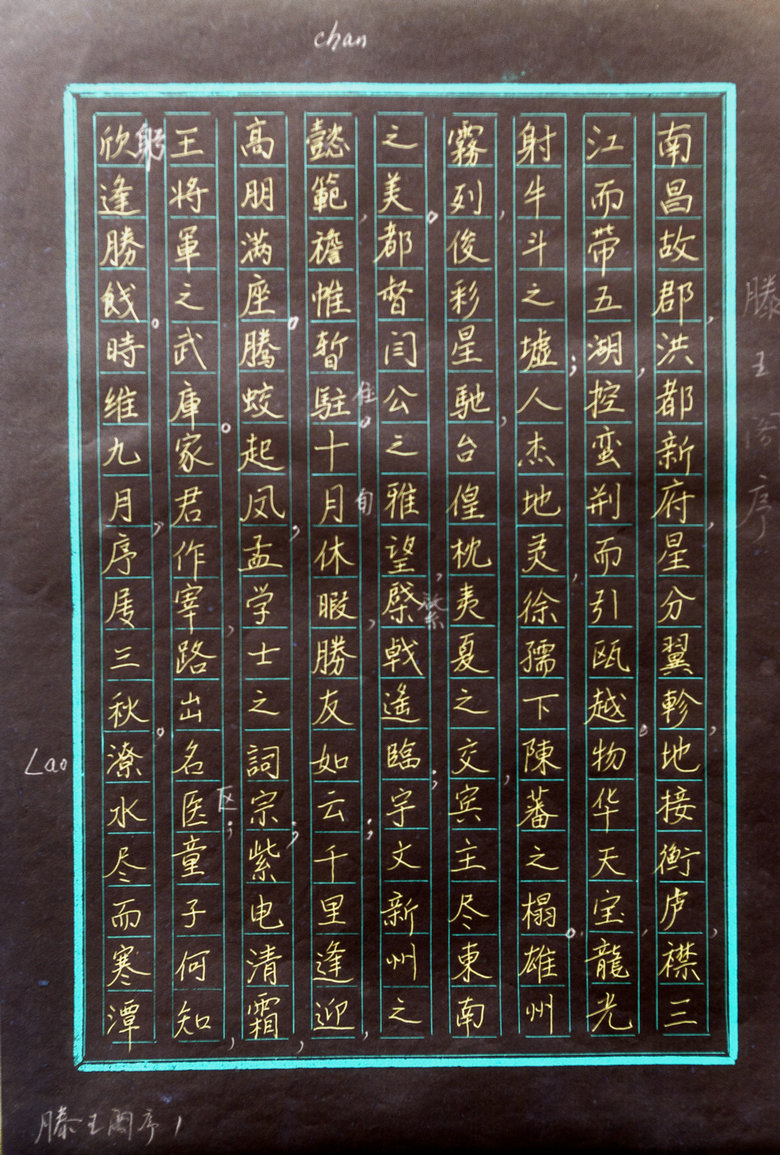 chan
滕王阁序
南昌故郡，洪都新府，星分翼軫，地接衡庐，襟三
江而带五湖，控蛮荆而引瓯越。物华天宝，龍光
射牛斗之墟；人杰地灵，徐孺下陳蕃之榻。雄州
霧列，俊彩星馳，台偟枕夷夏之交，宾主尽東南
之美。都督闫公之雅望，棨戟遥臨；宇文新州之
懿範，襜帷暂駐。十月休暇，勝友如云；千里逢迎，
住
旬
高朋满座。腾蛟起凤，孟学士之詞宗；紫电清霜，
王将軍之武庫。家君作宰，路出名医；童子何知，
区
躬
欣逢勝餞。時维九月，序属三秋。潦水尽而寒潭
Lao
滕王阁序1